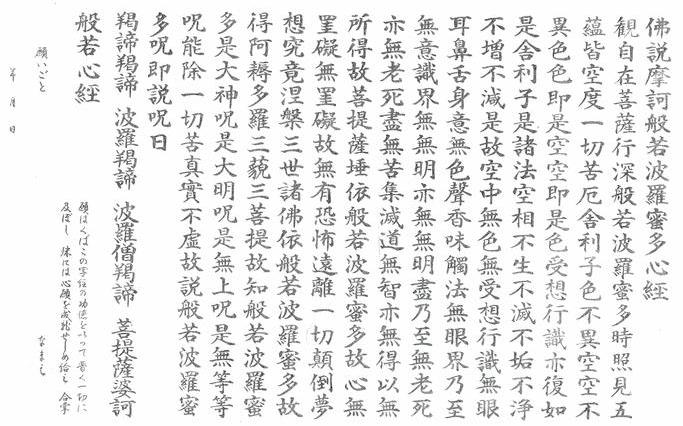 佛説摩訶般若波羅蜜多心経
観自在菩薩行深般若波羅蜜多時照見五
蘊皆空度一切苦厄舎利子色不異空空不
異色色即是空空即是色受想行識亦復如
是舎利子是諸法空相不生不滅不垢不浄
不増不減是故空中無色無受想行識無眼
耳鼻舌身意無色聲香味觸法無眼界乃至
無意識界無無明亦無無明盡乃至無老死
亦無老死盡無苦集滅道無智亦無得以無
所得故菩提薩埵依般若波羅蜜多故心無
罣礙無罣礙故無有恐怖遠離一切顛倒夢
想究竟涅槃三世諸佛依般若波羅蜜多故
得阿耨多羅三藐三菩提故知般若波羅蜜
多是大神呪是大明呪是無上呪是無等等
呪能除一切苦真實不虚故説般若波羅蜜
多呪即説呪曰
羯諦羯諦 波羅羯諦 波羅僧羯諦 菩提薩婆訶
般若心経
願いごと
年 月 日
願はくばこの写経の功徳をもって普く一切に
及ぼし 殊には心願を成就せしめ給え 合掌
なまえ